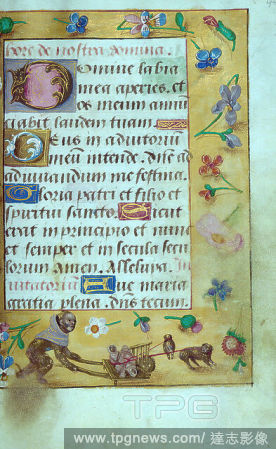 hore de nostra domina.
Domine labia
mea aperies. et
os meum annū
ciabit laudem tuam.
Deus in adiutoriū
meū intende. Dn̄e ad
adiuuandum me festina.
Gloria patri et filio et
spiritui sancto. Sicut
erat in principio et nunc
et semper et in secula secu
lorum. amen. Alleluya. In
uitatoriū Aue maria
gratia plena. dn̄s tecum.
TPG
www.tpgnews.com/ 達志影像